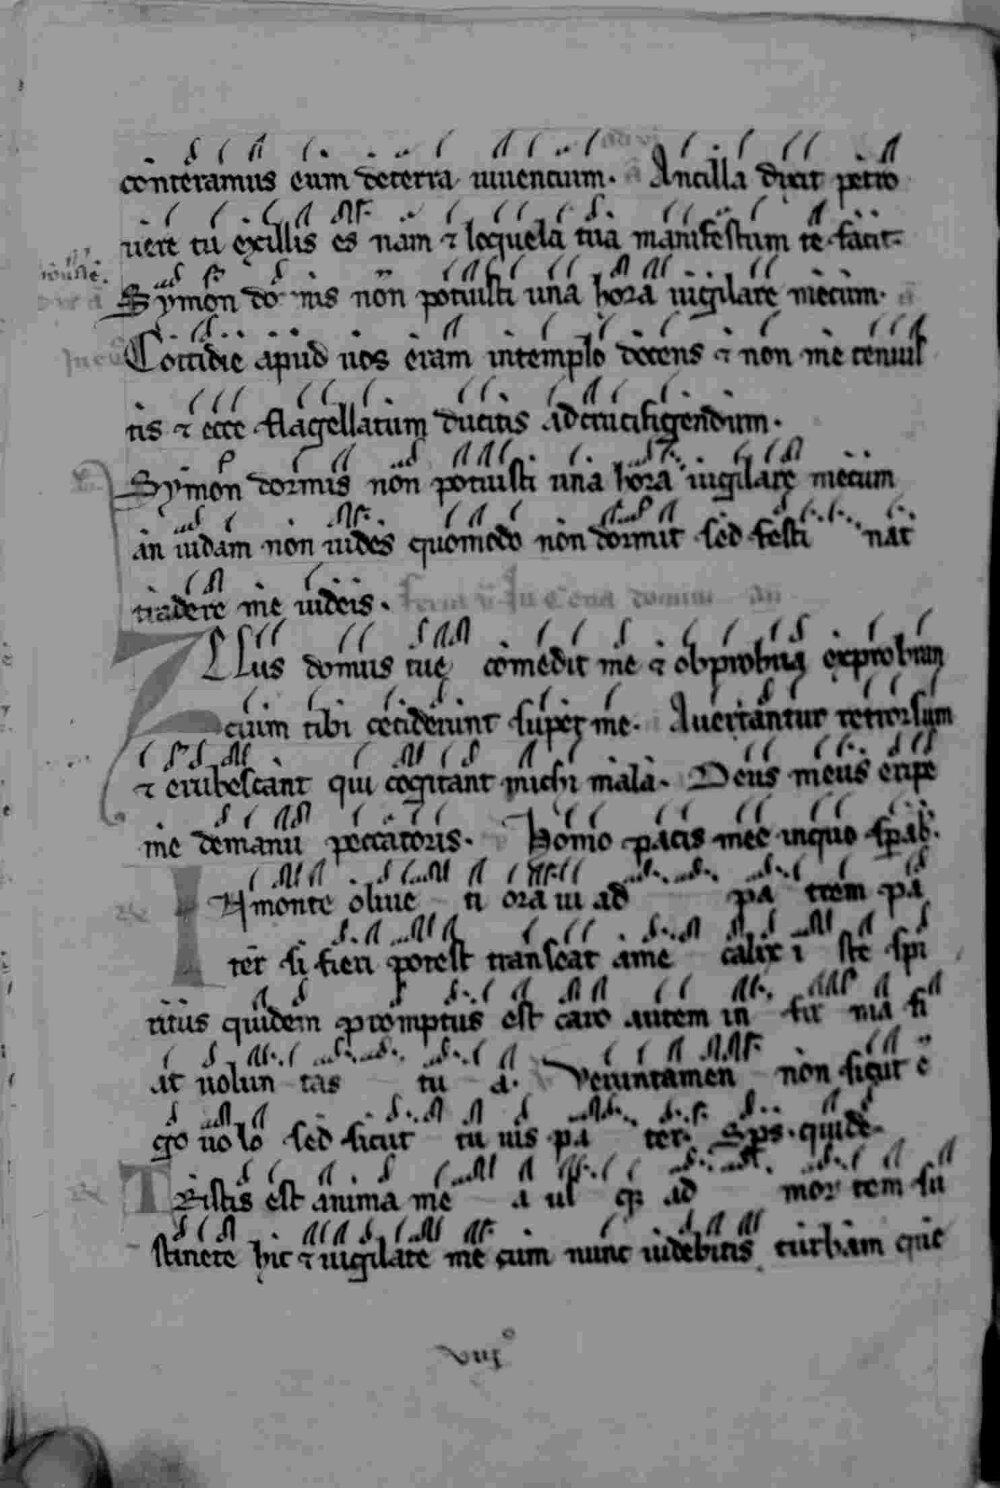 conteramus eum deterra uiuentium. Ancilla dixit petro
uere tu exillis es nam ⁊ loquela tua manifestum te facit.
Symon do mis non potuisti una hora uigilare mecum.
Cottidie apud uos eram intemplo docens ⁊ non me tenuis
tis ⁊ ecce flagellatum ducitis adcrucifigendum.
Symon dormis non potuisti una hora uigilare mecum
an iudam non uides quomodo non dormit sed festi nat
tradere me iudeis. feria v in Cena domini an
ZElus domus tue comedit me ⁊ obprobria exprobran
cium tibi ceciderunt super me. Auertantur retrorsum
⁊ erubescant qui cogitant michi mala. Deus meus eripe
me demanu peccatoris. Homo pacis mee inquo sperab.
IN monte oliue ti ora ui ad pa trem pa
ter si fieri potest transeat ame calix i ste spi
ritus quidem promptus est caro autem in fir ma fi
at uolun tas tu a. Veruntamen non sicut e
go uo lo sed sicut tu uis pa ter. Sps. quide.
TRistis est anima me a us q; ad mor tem su
stinete hic ⁊ uigilate me cum nunc uidebitis turbam que
viiiº